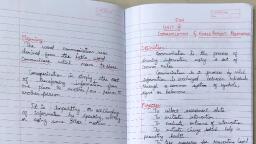 Meaning:
The word communication was
derived from the latin word
communicare which means to share
Communication is simply the act
of transferring information from
one place to another, from person to
another person.
It is imparting or exchange
of information by speaking, writing or
using some other medium.
UNIT
COMMUNICATION &
Definition:
Communication is the process of
sharing information using a set of
common rules.
Communication is a process by which
information is exchanged between individuals
through a common system of symbols
signs or behaviour.
Purpose:
To collect assessment data
To initiate intervention
To evaluate outcome of intervention
To initiate change which help in
promoting health